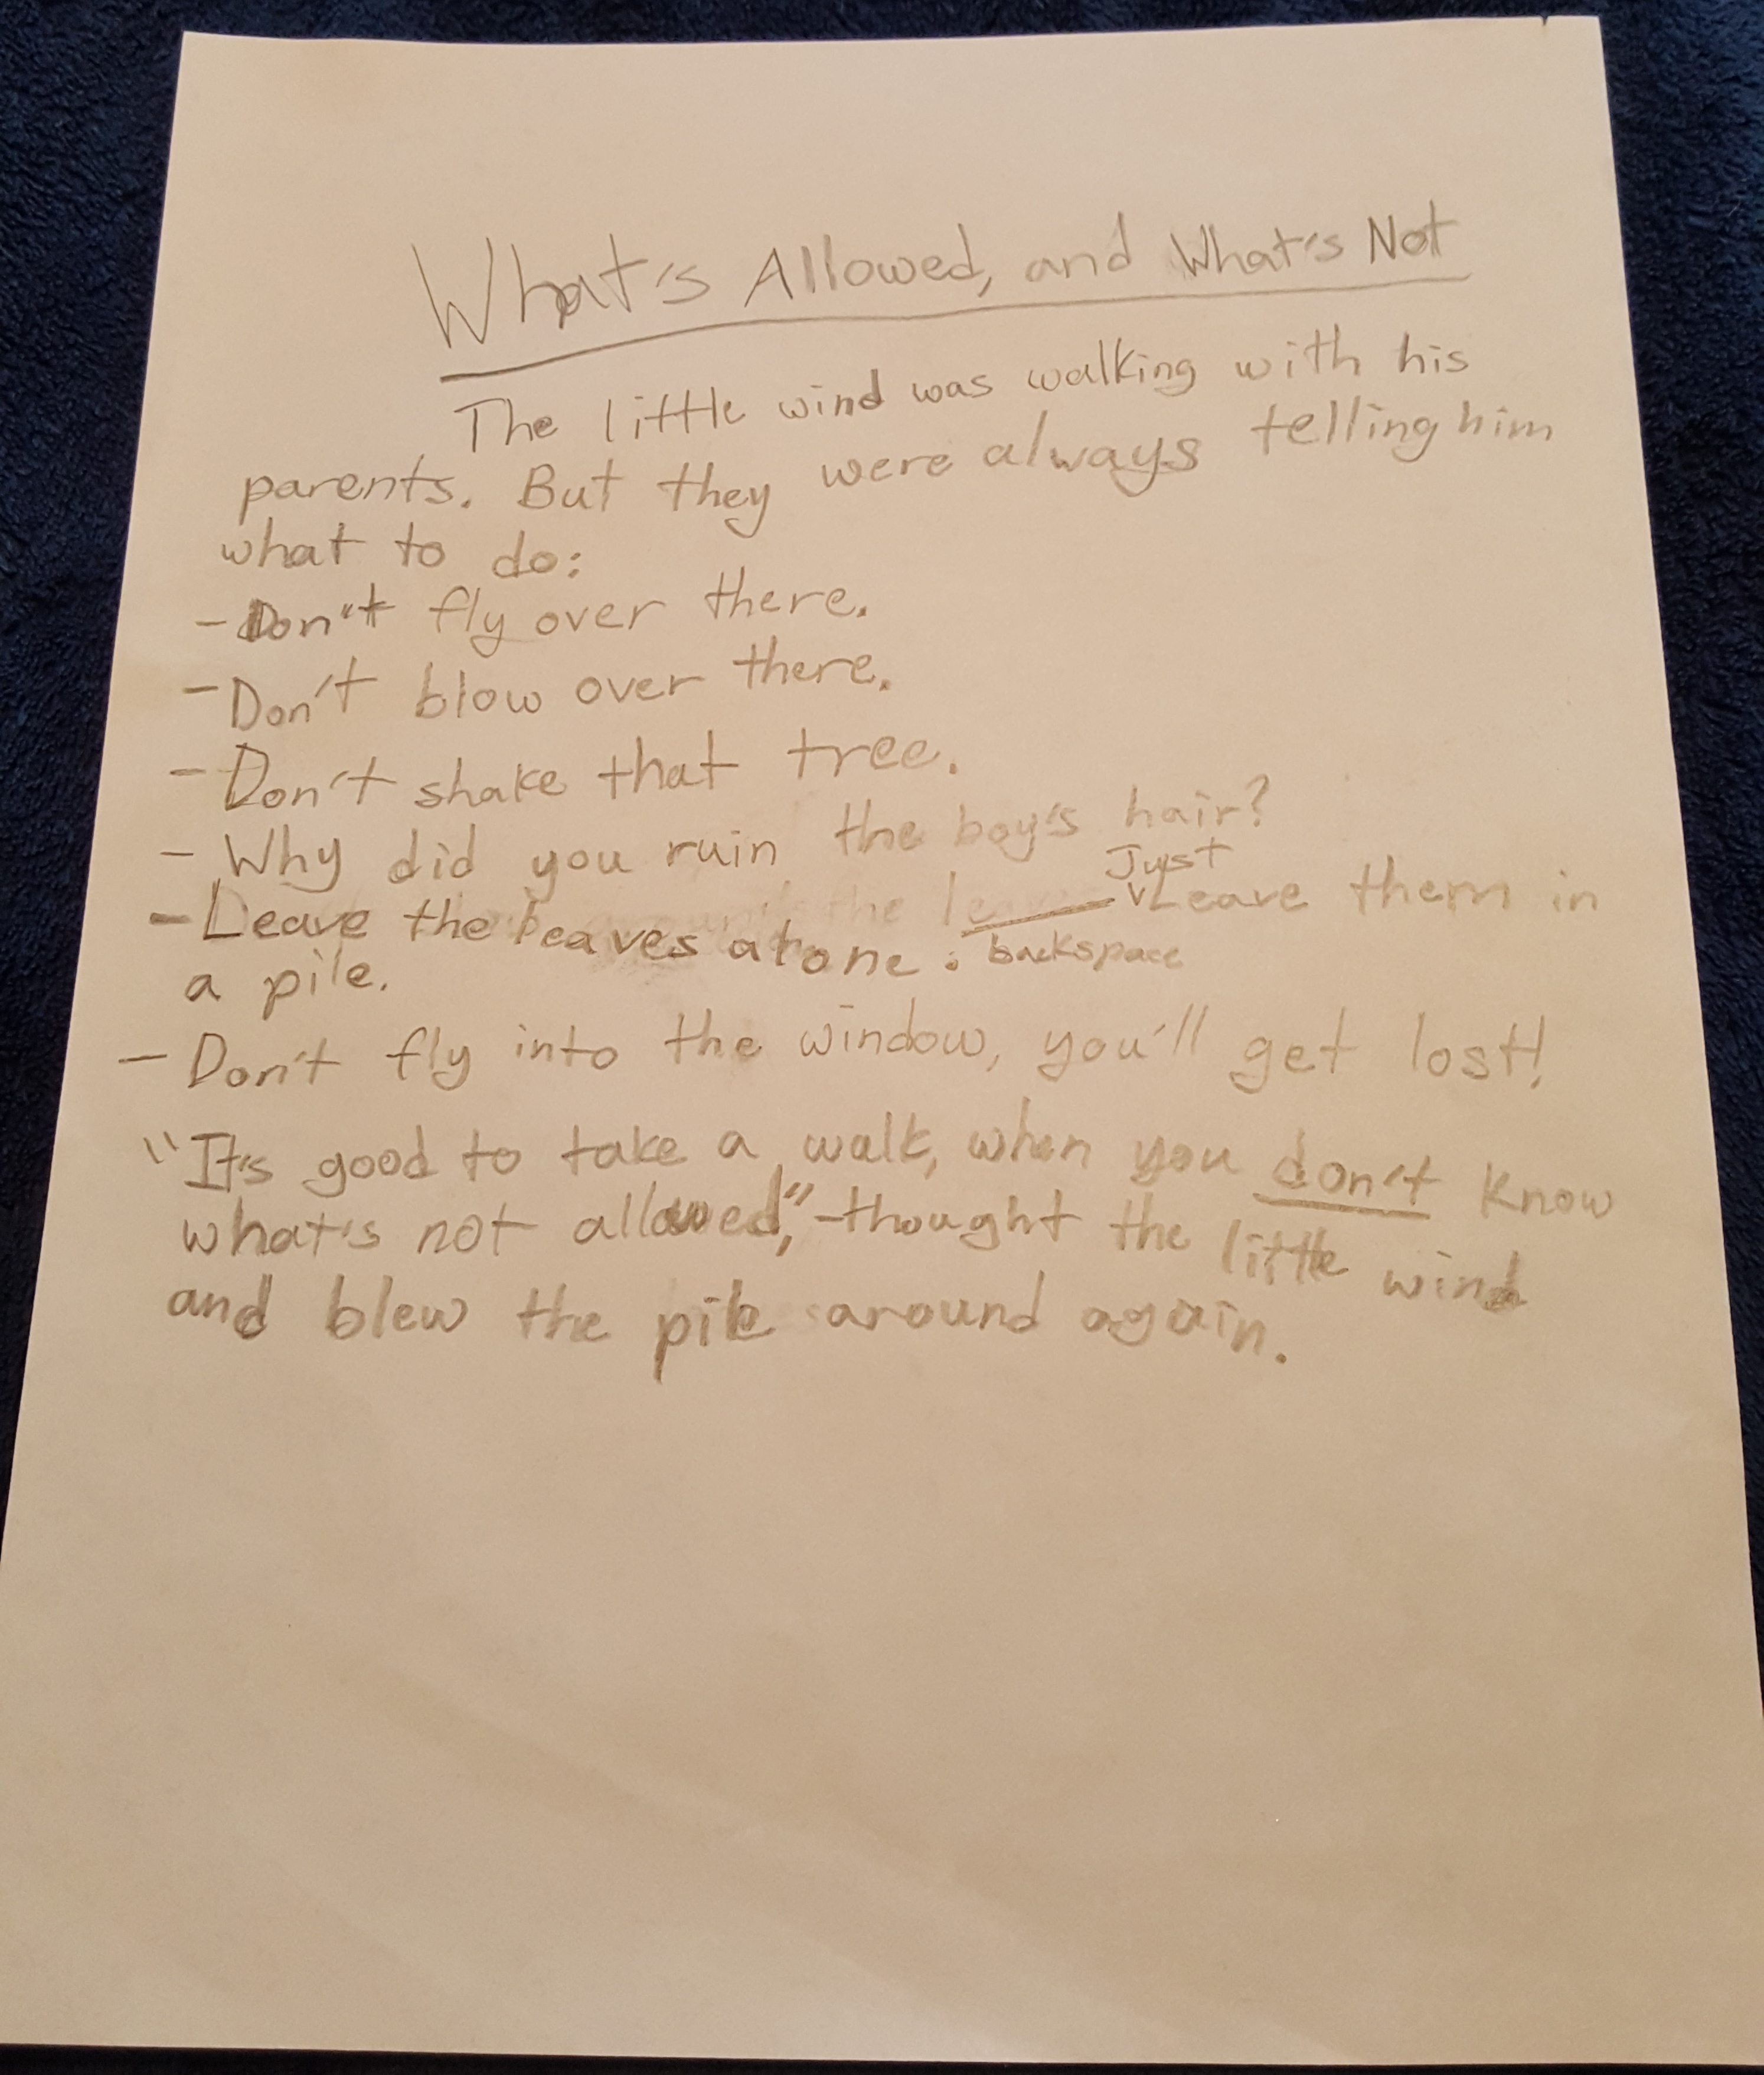 What's Allowed, and What's Not
The little wind was walking with his
parents. But they were always telling him
what to do:
- Don't fly over there.
- Don't blow over there.
- Don't shake that tree.
- Why did you ruin the boy's hair?
Just
- Leave the leaves alone. Leave them in
backspace
a pile.
- Don't fly into the window, you'll get lost!
"It's good to take a walk, when you don't know
what's not allowed," - thought the little wind
and blew the pile around again.